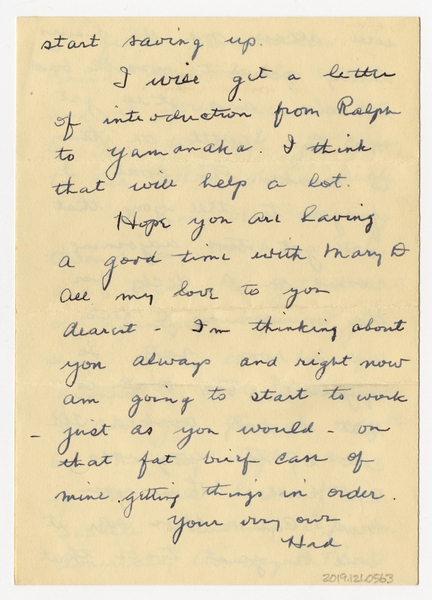 start saving up.
I will get a letter
of introduction from Ralph
to Yamanaka. I think
that will help a lot.
Hope you are having
a good time with Mary D
All my love to you
dearest - I'm thinking about
you always and right now
am going to start to work
- just as you would - on
that fat brief case of
mine, getting things in order.
Your very own
Had
2019.121.0563